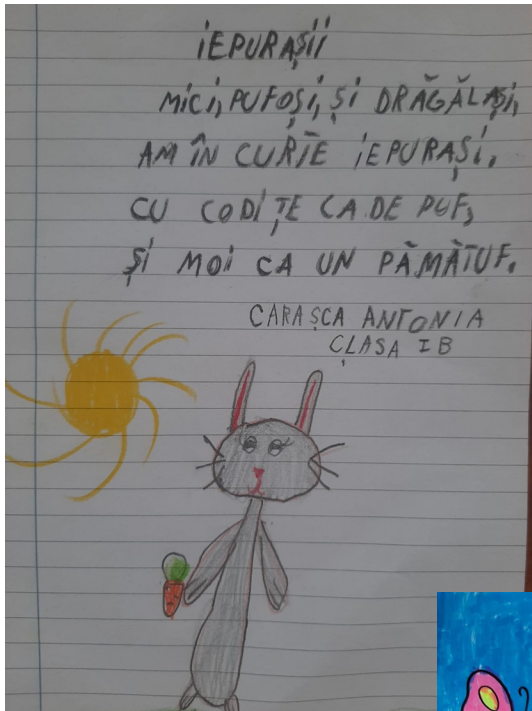 IEPURAȘII
MICI, PUFOȘI, ȘI DRĂGĂLAȘI,
AM ÎN CURTE IEPURAȘI.
CU CODIȚE CA DE PUF,
ȘI MOI CA UN PĂMĂTUF.
CARAȘCA ANTONIA
CLASA I B